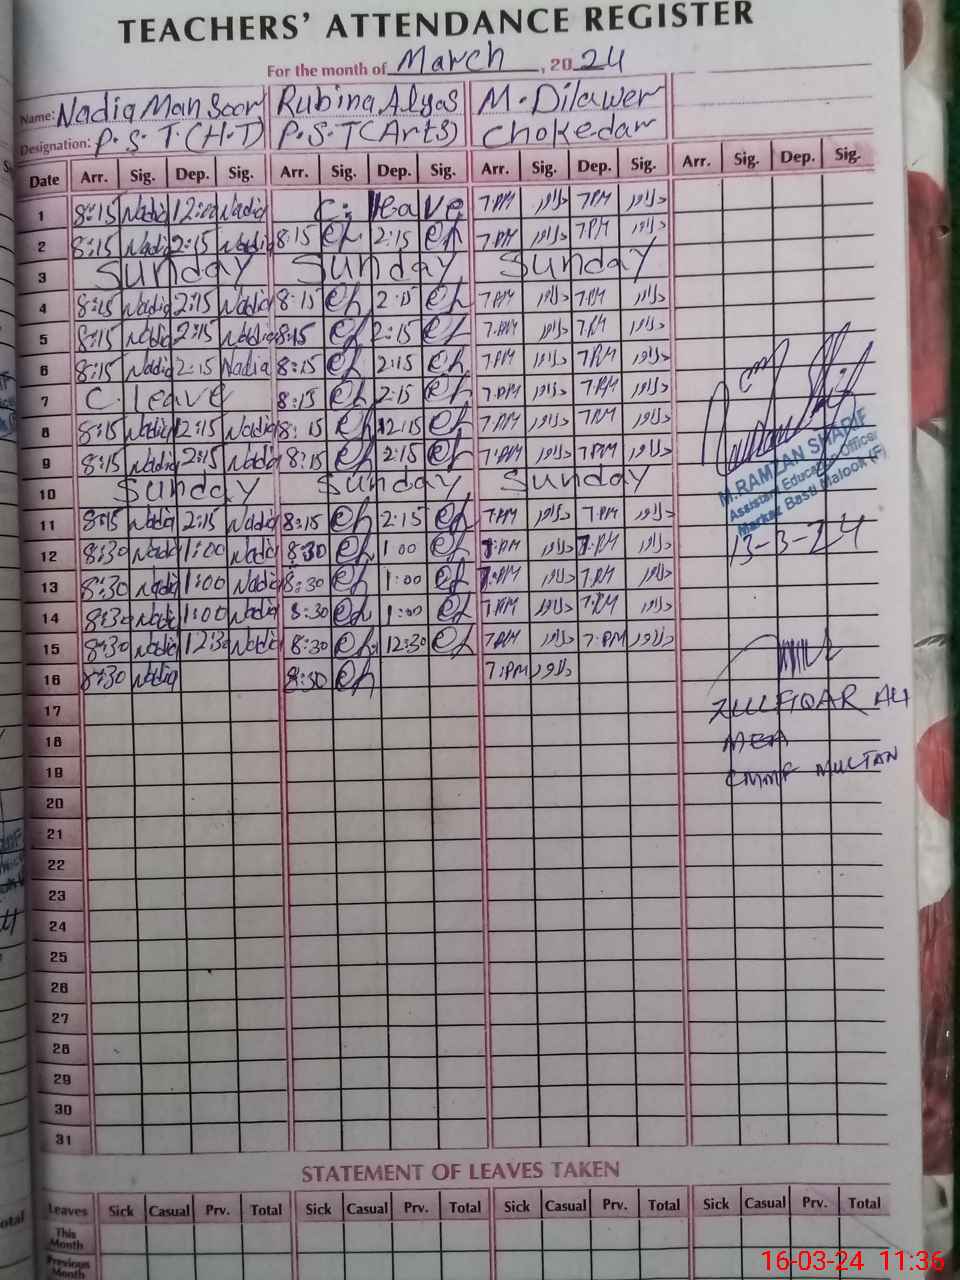 TEACHERS' ATTENDANCE REGISTER
For the month of March, 2024
Name: Nadia Mansoor Rubina Alyas M. Dilawer
Designation: P.S.T.(H.T) P.S.T(Arts) Chokedar
Date Arr. Sig. Dep. Sig. Arr. Sig. Dep. Sig. Arr. Sig. Dep. Sig. Arr. Sig. Dep. Sig.
1 8:15 Nadia 12:00 Nadia C. leave 7.PM دلاور 7PM دلاور
2 8:15 Nadia 2:15 Nadia 8:15 2:15 7.PM دلاور 7.PM دلاور
3 Sunday Sunday Sunday
4 8:15 Nadia 2:15 Nadia 8:15 2:15 7.PM دلاور 7.PM دلاور
5 8:15 Nadia 2:15 Nadia 8:15 2:15 7.PM دلاور 7.PM دلاور
6 8:15 Nadia 2:15 Nadia 8:15 2:15 7.PM دلاور 7PM دلاور
7 C. leave 8:15 2:15 7.PM دلاور 7.PM دلاور
8 8:15 Nadia 12:15 Nadia 8:15 12:15 7.PM دلاور 7PM دلاور
9 8:15 Nadia 2:15 Nadia 8:15 2:15 7.PM دلاور 7.PM دلاور
10 Sunday Sunday Sunday
11 8:15 Nadia 2:15 Nadia 8:15 2:15 7.PM دلاور 7.PM دلاور
12 8:30 Nadia 1:00 Nadia 8:30 1:00 7.PM دلاور 7.PM دلاور
13 8:30 Nadia 1:00 Nadia 8:30 1:00 7.PM دلاور 7.PM دلاور
14 8:30 Nadia 1:00 Nadia 8:30 1:00 7.PM دلاور 7.PM دلاور
15 8:30 Nadia 12:30 Nadia 8:30 12:30 7PM دلاور 7.PM دلاور
16 8:30 Nadia 8:30 7:PM دلاور
17
18
19
20
21
22
23
24
25
26
27
28
29
30
31
M.RAMZAN SHARIF
Assistant Education Officer
Markaz Basti Malook (F)
13-3-24
ZULFIQAR ALI
MEA
CMMF MULTAN
STATEMENT OF LEAVES TAKEN
Leaves Sick Casual Prv. Total Sick Casual Prv. Total Sick Casual Prv. Total Sick Casual Prv. Total
This Month
Previous Month
16-03-24 11:36